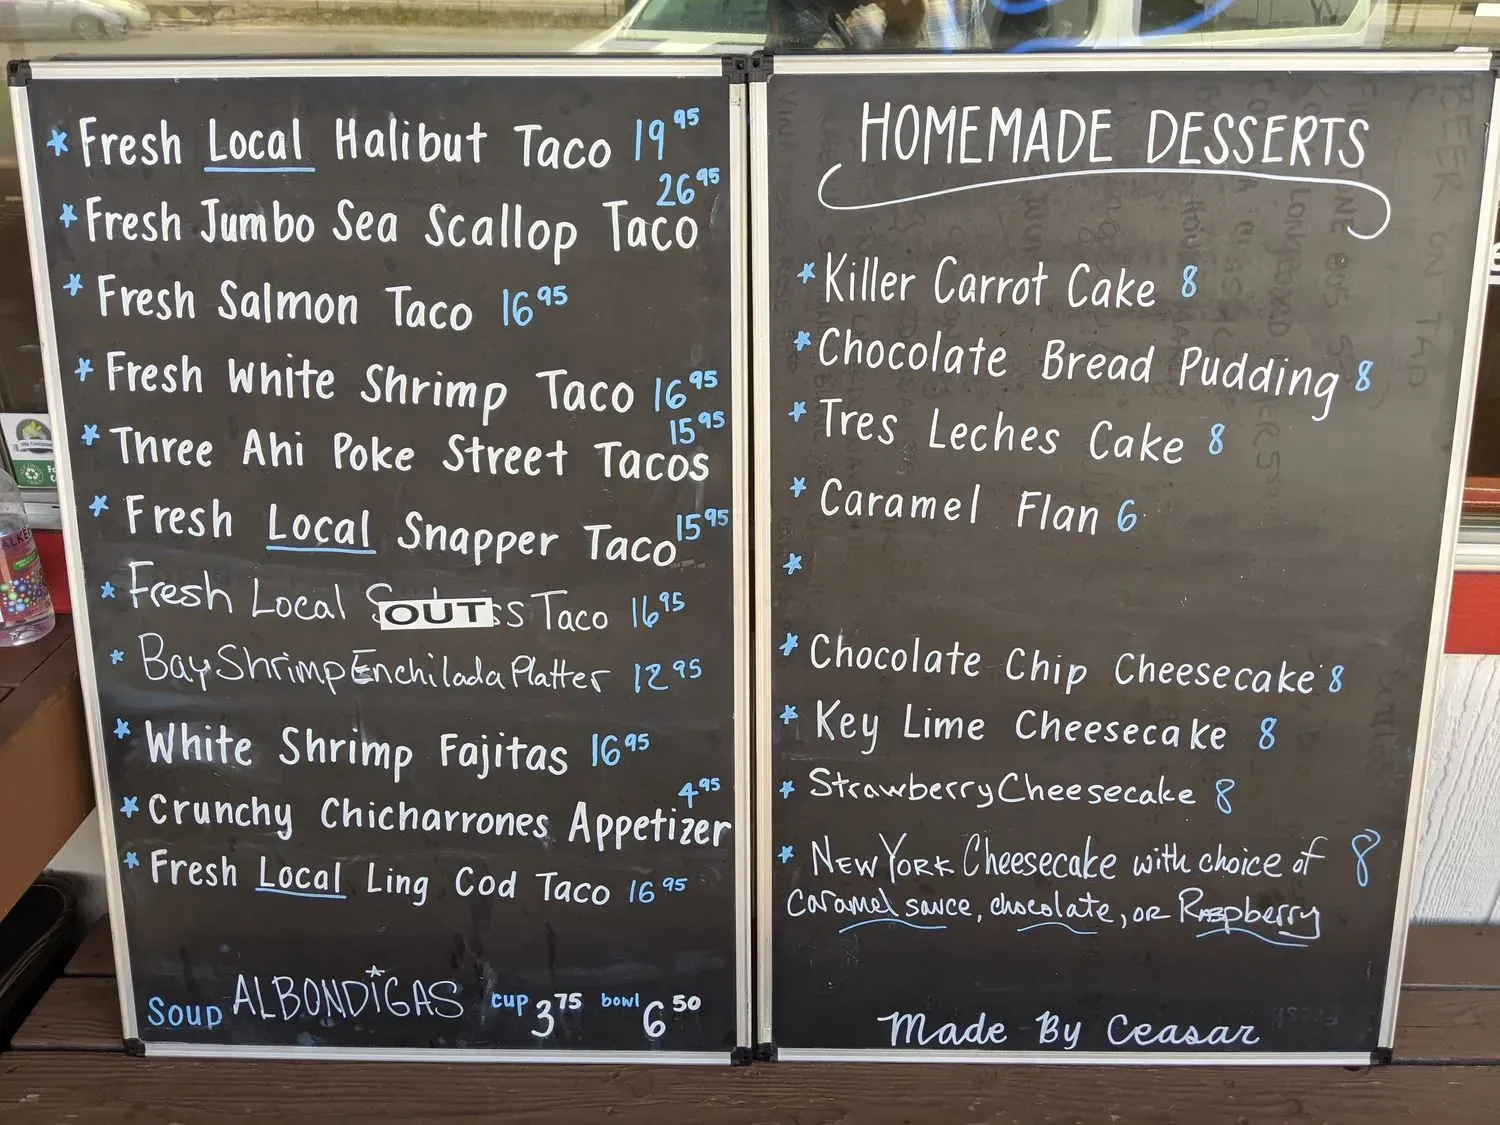 * Fresh Local Halibut Taco 19 95
* Fresh Jumbo Sea Scallop Taco 26 95
* Fresh Salmon Taco 16 95
* Fresh White Shrimp Taco 16 95
* Three Ahi Poke Street Tacos 15 95
* Fresh Local Snapper Taco 15 95
* Fresh Local OUT Taco 16 95
* Bay Shrimp Enchilada Platter 12 95
* White Shrimp Fajitas 16 95
* Crunchy Chicharrones Appetizer 4 95
* Fresh Local Ling Cod Taco 16 95
Soup ALBONDIGAS cup 3 75 bowl 6 50
HOMEMADE DESSERTS
* Killer Carrot Cake 8
* Chocolate Bread Pudding 8
* Tres Leches Cake 8
* Caramel Flan 6
*
* Chocolate Chip Cheesecake 8
* Key Lime Cheesecake 8
* Strawberry Cheesecake 8
* NEW YORK Cheesecake with choice of 8
Caramel sauce, chocolate, or Raspberry
Made By Ceasar